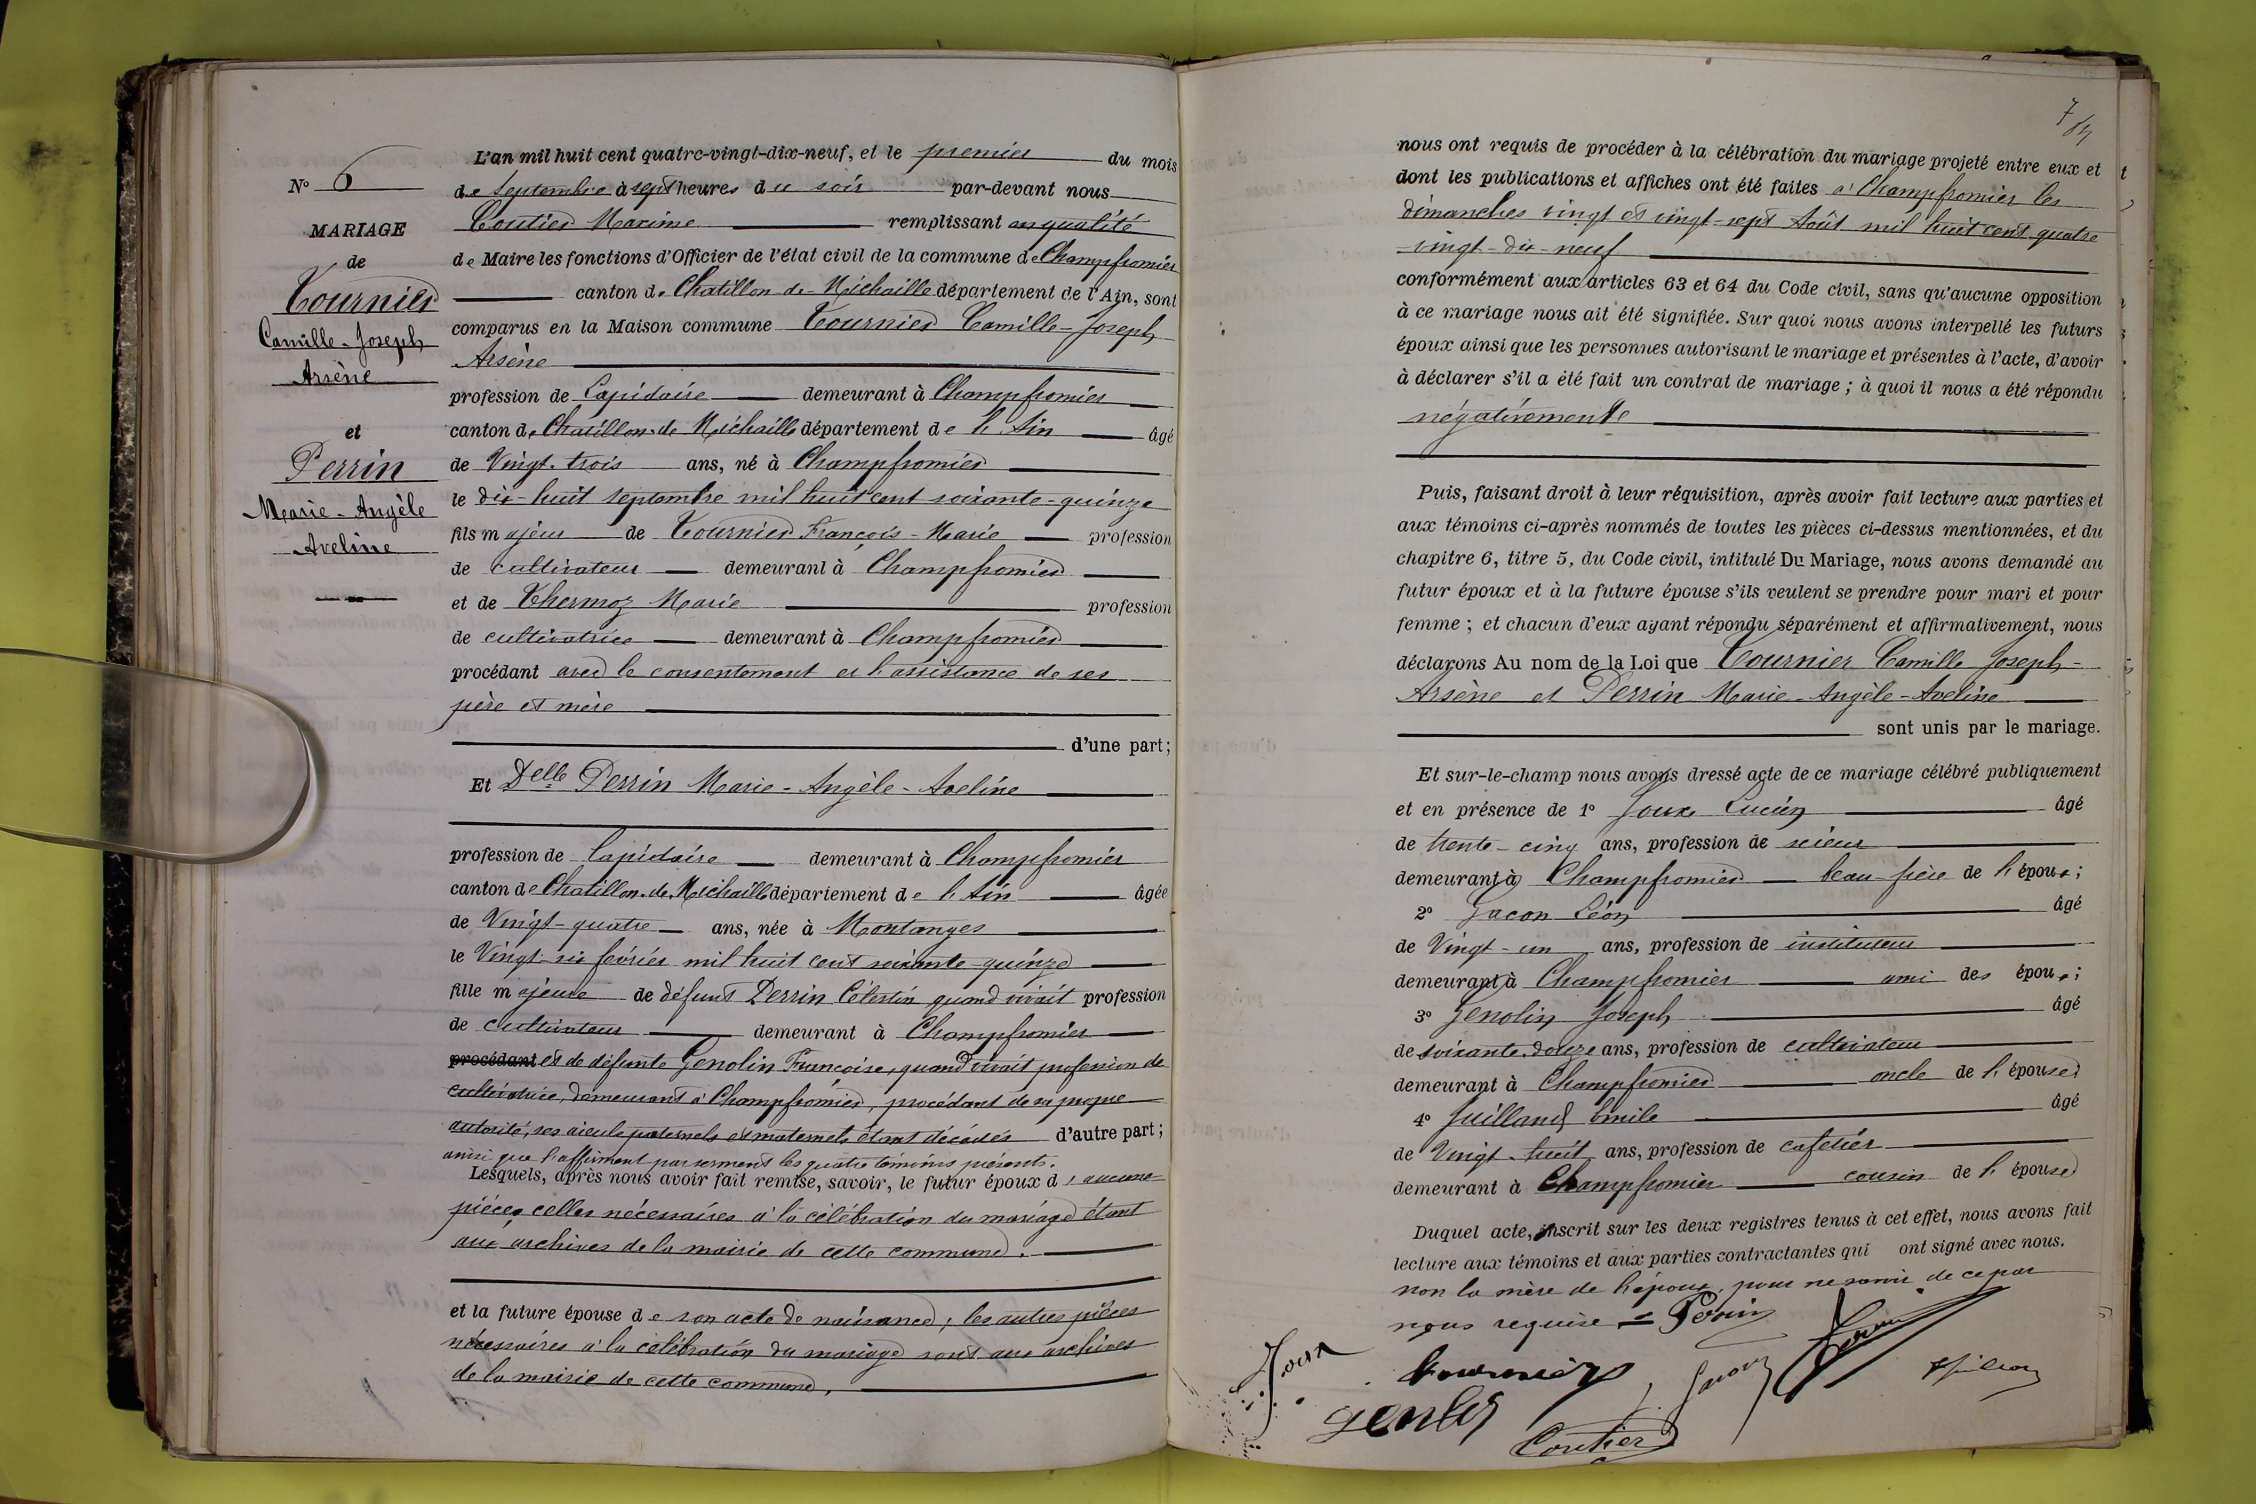 N° 6
MARIAGE
de
Tournier
Camille-Joseph
Arsène
et
Perrin
Marie-Angèle
Aveline
L'an mil huit cent quatre-vingt-dix-neuf, et le premier du mois
de Septembre à sept heures du soir par-devant nous
Coutier Maxime remplissant en qualité
de Maire les fonctions d'Officier de l'état civil de la commune de Champfromier
canton de Chatillon-de-Michaille département de l'Ain, sont
comparus en la Maison commune Tournier Camille-Joseph
Arsène
profession de Lapidaire demeurant à Champfromier
canton de Chatillon-de-Michaille département de l'Ain âgé
de Vingt-trois ans, né à Champfromier
le dix-huit septembre mil huit cent soixante-quinze
fils majeur de Tournier François-Marie profession
de cultivateur demeurant à Champfromier
et de Thermoz Marie profession
de cultivatrice demeurant à Champfromier
procédant avec le consentement et l'assistance de ses
père et mère
d'une part;
Et Delle Perrin Marie-Angèle-Aveline
profession de lapidaire demeurant à Champfromier
canton de Chatillon-de-Michaille département de l'Ain âgée
de Vingt-quatre ans, née à Montanges
le Vingt-six février mil huit cent soixante-quinze
fille majeure de défunt Perrin Célestin quand vivait profession
de cultivateur demeurant à Champfromier
procédant et de défunte Genolin Françoise, quand vivait profession de
cultivatrice, demeurant à Champfromier, procédant de sa propre
autorité, ses aïeuls paternels et maternels étant décédés d'autre part;
ainsi que l'affirment par serment les quatre témoins présents.
Lesquels, après nous avoir fait remise, savoir, le futur époux d'aucune
pièce, celles nécessaires à la célébration du mariage étant
aux archives de la mairie de cette commune.
et la future épouse de son acte de naissance; les autres pièces
nécessaires à la célébration du mariage sont aux archives
de la mairie de cette commune.
7
nous ont requis de procéder à la célébration du mariage projeté entre eux et
dont les publications et affiches ont été faites à Champfromier les
dimanches vingt et vingt-sept Août mil huit cent quatre
vingt-dix-neuf
conformément aux articles 63 et 64 du Code civil, sans qu'aucune opposition
à ce mariage nous ait été signifiée. Sur quoi nous avons interpellé les futurs
époux ainsi que les personnes autorisant le mariage et présentes à l'acte, d'avoir
à déclarer s'il a été fait un contrat de mariage; à quoi il nous a été répondu
négativement
Puis, faisant droit à leur réquisition, après avoir fait lecture aux parties et
aux témoins ci-après nommés de toutes les pièces ci-dessus mentionnées, et du
chapitre 6, titre 5, du Code civil, intitulé Du Mariage, nous avons demandé au
futur époux et à la future épouse s'ils veulent se prendre pour mari et pour
femme; et chacun d'eux ayant répondu séparément et affirmativement, nous
déclarons Au nom de la Loi que Tournier Camille Joseph-
Arsène et Perrin Marie-Angèle-Aveline
sont unis par le mariage.
Et sur-le-champ nous avons dressé acte de ce mariage célébré publiquement
et en présence de 1° Joux Lucien âgé
de trente-cinq ans, profession de scieur
demeurant à Champfromier beau-frère de l'époux;
2° Gacon Léon âgé
de Vingt-un ans, profession de instituteur
demeurant à Champfromier ami des époux;
3° Genolin Joseph âgé
de soixante-douze ans, profession de cultivateur
demeurant à Champfromier oncle de l'épouse
4° Juilland Emile âgé
de Vingt-huit ans, profession de cafetier
demeurant à Champfromier cousin de l'épouse
Duquel acte, inscrit sur les deux registres tenus à cet effet, nous avons fait
lecture aux témoins et aux parties contractantes qui ont signé avec nous.
non la mère de l'époux, pour ne savoir de ce par
nous requise = Perrin
Joux
Tournier
Gacon
Coutier